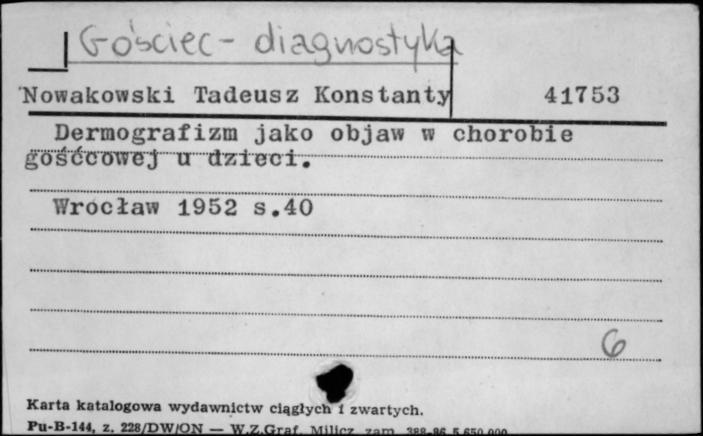 Gościec - diagnostyka
Nowakowski Tadeusz Konstanty 41753
Dermografizm jako objaw w chorobie
gośćcowej u dzieci.
Wrocław 1952 s.40
6
Karta katalogowa wydawnictw ciągłych i zwartych.
Pu-B-144, z. 228/DW/ON — W.Z.Graf. Milicz zam. 388-86 5.650.000